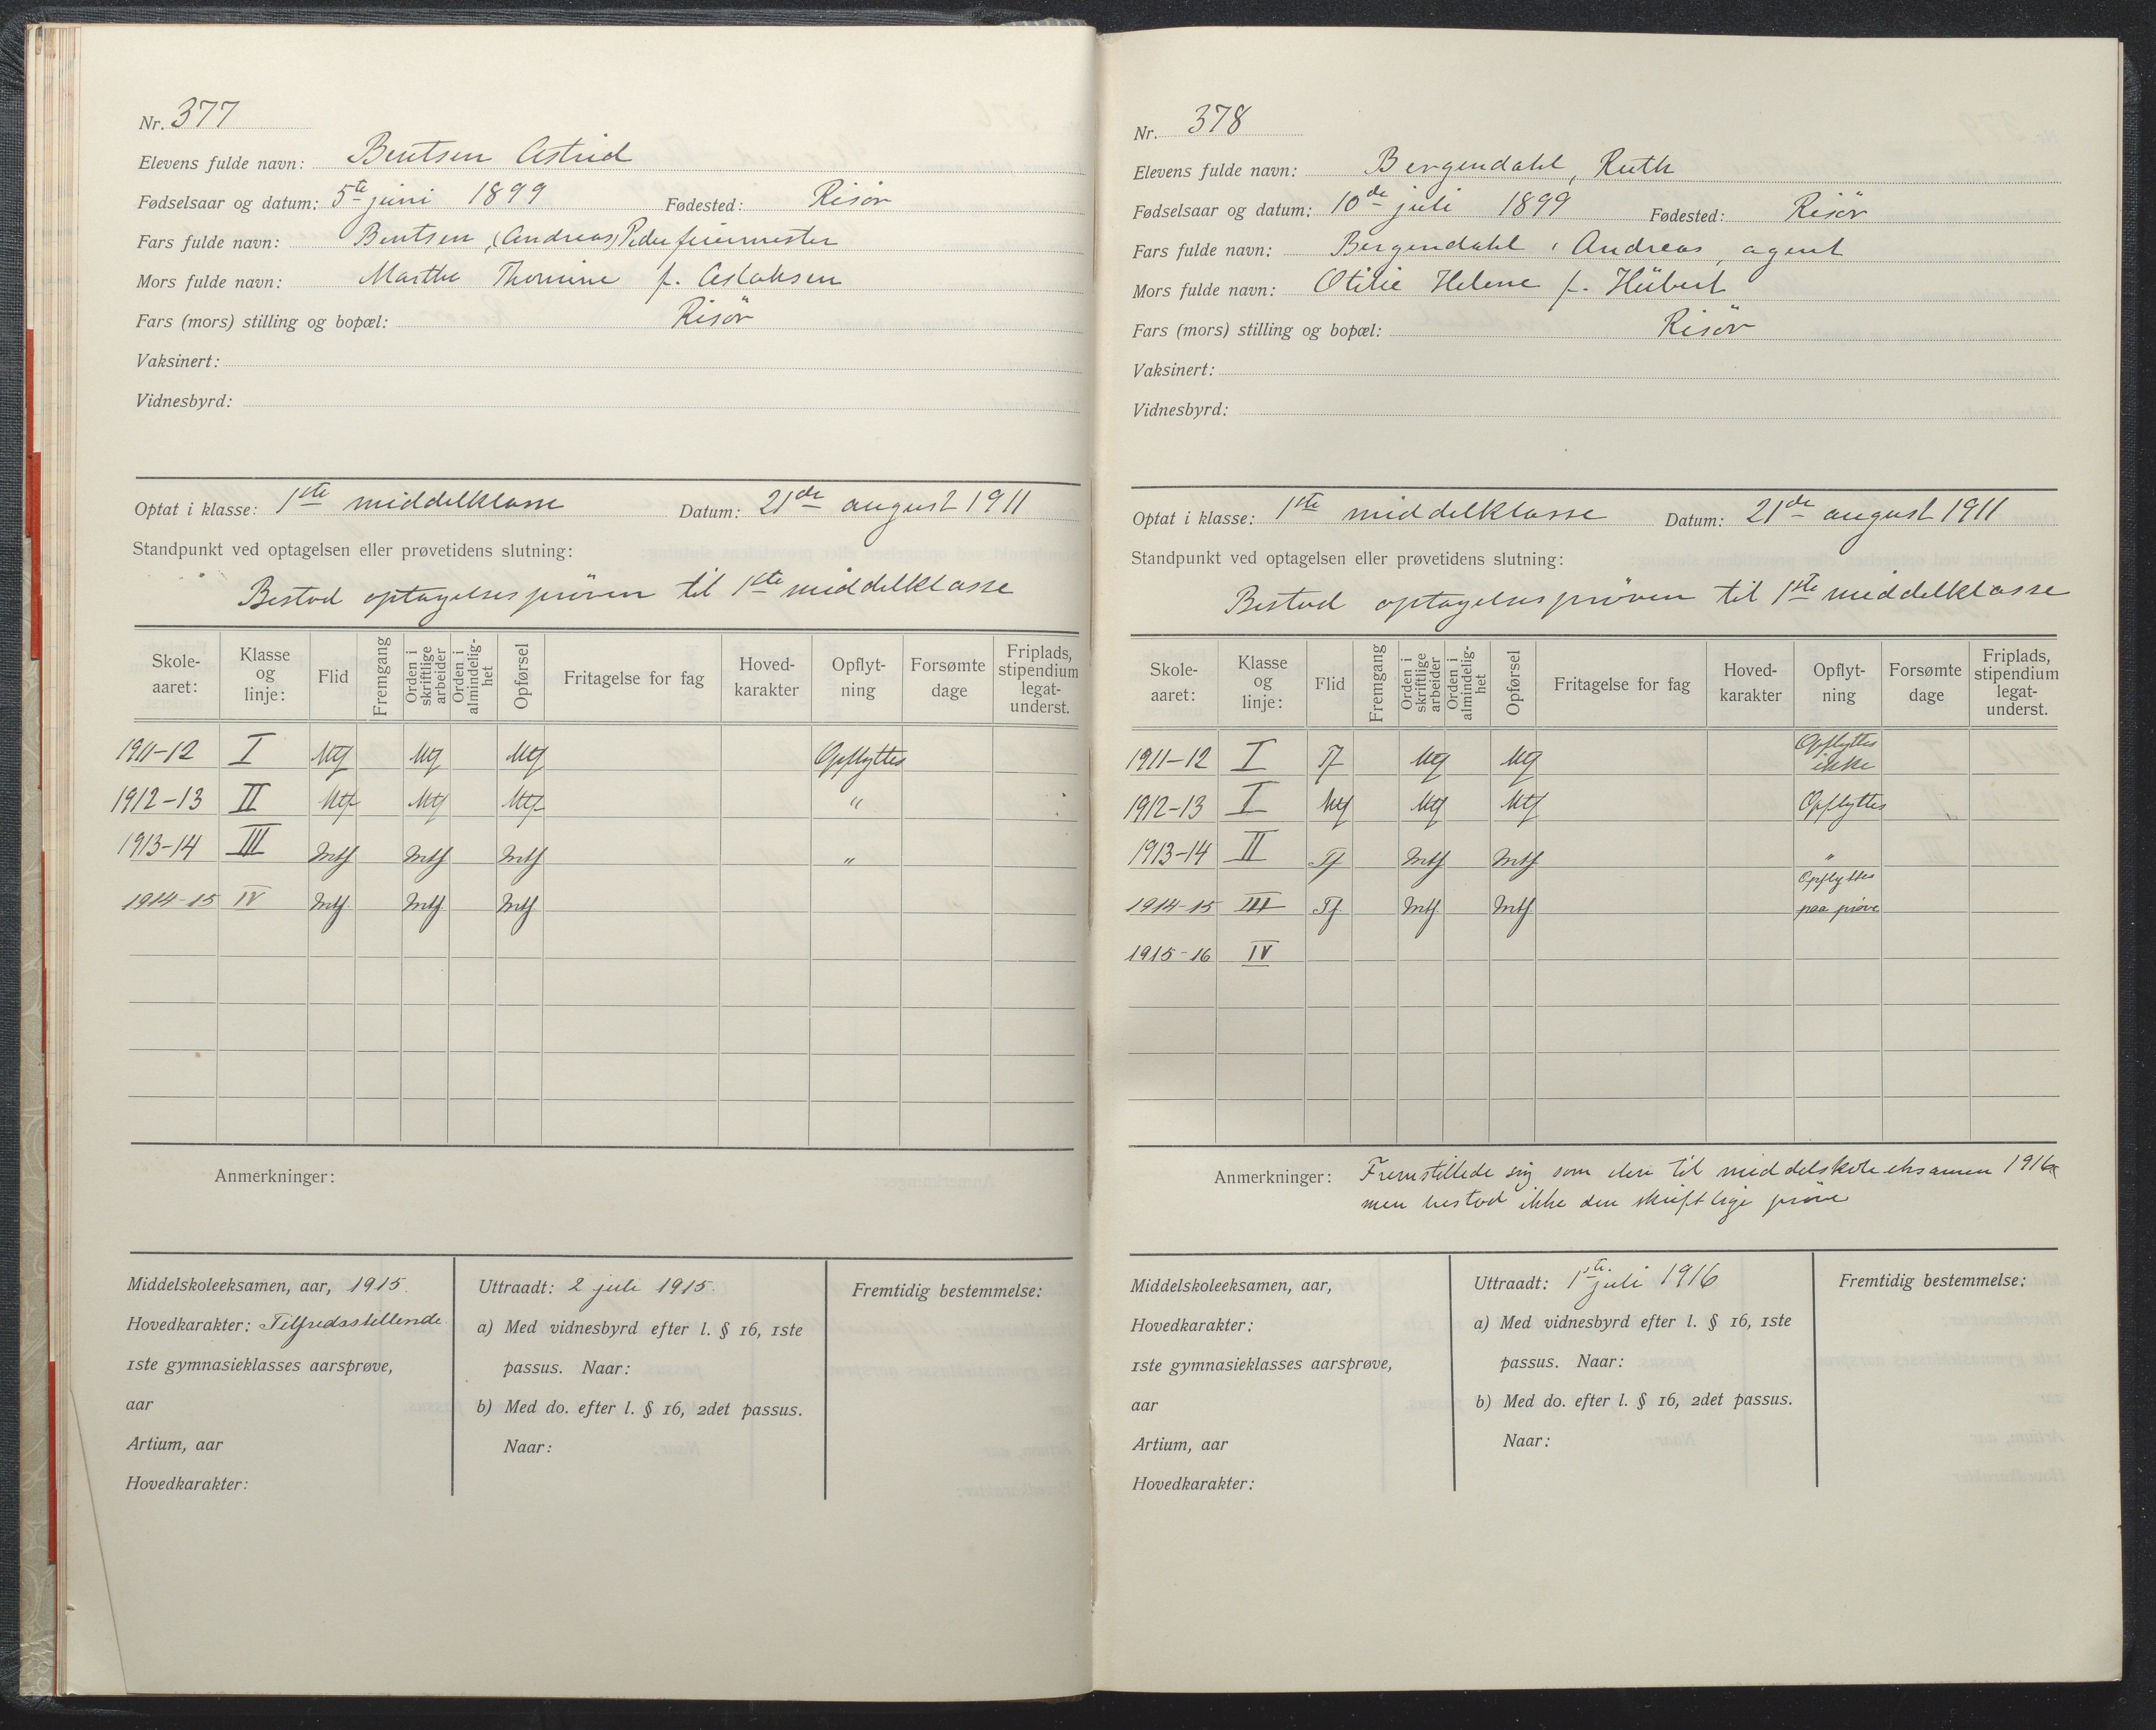 Nr. 377
Elevens fulde navn: Bentsen Astrid
Fødselsaar og datum: 5te juni 1899 Fødested: Risör
Fars fulde navn: Bentsen, (Andreas) Peder feiermester
Mors fulde navn: Marthe Thomine f. Aslaksen
Fars (mors) stilling og bopæl: Risör
Vaksinert:
Vidnesbyrd:
Optat i klasse: 1ste middelklasse Datum: 21de august 1911
Standpunkt ved optagelsen eller prøvetidens slutning:
Bestod optagelsespröven til 1ste middelklasse
Skole-aaret: Klasse og linje: Flid Fremgang Orden i skriftlige arbeider Orden i almindelig-het Opførsel Fritagelse for fag Hoved-karakter Opflyt-ning Forsømte dage Friplads, stipendium legat-underst.
1911-12 I Mtf Mtf Mtf Opflyttes
1912-13 II Mtf Mtf Mtf "
1913-14 III Mtf Mtf Mtf "
1914-15 IV Mtf Mtf Mtf
Anmerkninger:
Middelskoleeksamen, aar, 1915.
Hovedkarakter: Tilfredsstillende.
1ste gymnasieklasses aarsprøve,
aar
Artium, aar
Hovedkarakter:
Uttraadt: 2 juli 1915.
a) Med vidnesbyrd efter l. § 16, 1ste
passus. Naar:
b) Med do. efter l. § 16, 2det passus.
Naar:
Fremtidig bestemmelse:
Nr. 378
Elevens fulde navn: Bergendahl, Ruth
Fødselsaar og datum: 10de juli 1899 Fødested: Risör
Fars fulde navn: Bergendahl, Andreas, agent
Mors fulde navn: Otilie Helene f. Hübert
Fars (mors) stilling og bopæl: Risör
Vaksinert:
Vidnesbyrd:
Optat i klasse: 1ste middelklasse Datum: 21de august 1911
Standpunkt ved optagelsen eller prøvetidens slutning:
Bestod optagelsespröven til 1ste middelklasse
Skole-aaret: Klasse og linje: Flid Fremgang Orden i skriftlige arbeider Orden i almindelig-het Opførsel Fritagelse for fag Hoved-karakter Opflyt-ning Forsømte dage Friplads, stipendium legat-underst.
1911-12 I Tf Mtf Mtf Opflyttes ikke
1912-13 I Mtf Mtf Mtf Opflyttes
1913-14 II Tf Mtf Mtf "
1914-15 III Tf. Mtf. Mtf. Opflyttes paa prøve
1915-16 IV
Anmerkninger: Fremstillede sig som elev til middelskoleeksamen 1916
men bestod ikke den skriftlige pröve
Middelskoleeksamen, aar,
Hovedkarakter:
1ste gymnasieklasses aarsprøve,
aar
Artium, aar
Hovedkarakter:
Uttraadt: 1ste juli 1916
a) Med vidnesbyrd efter l. § 16, 1ste
passus. Naar:
b) Med do. efter l. § 16, 2det passus.
Naar:
Fremtidig bestemmelse: